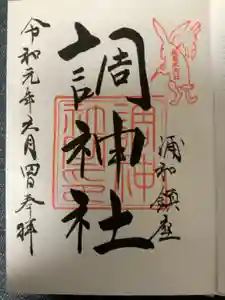 浦和鎮座
調神社
令和元年六月四日奉拝